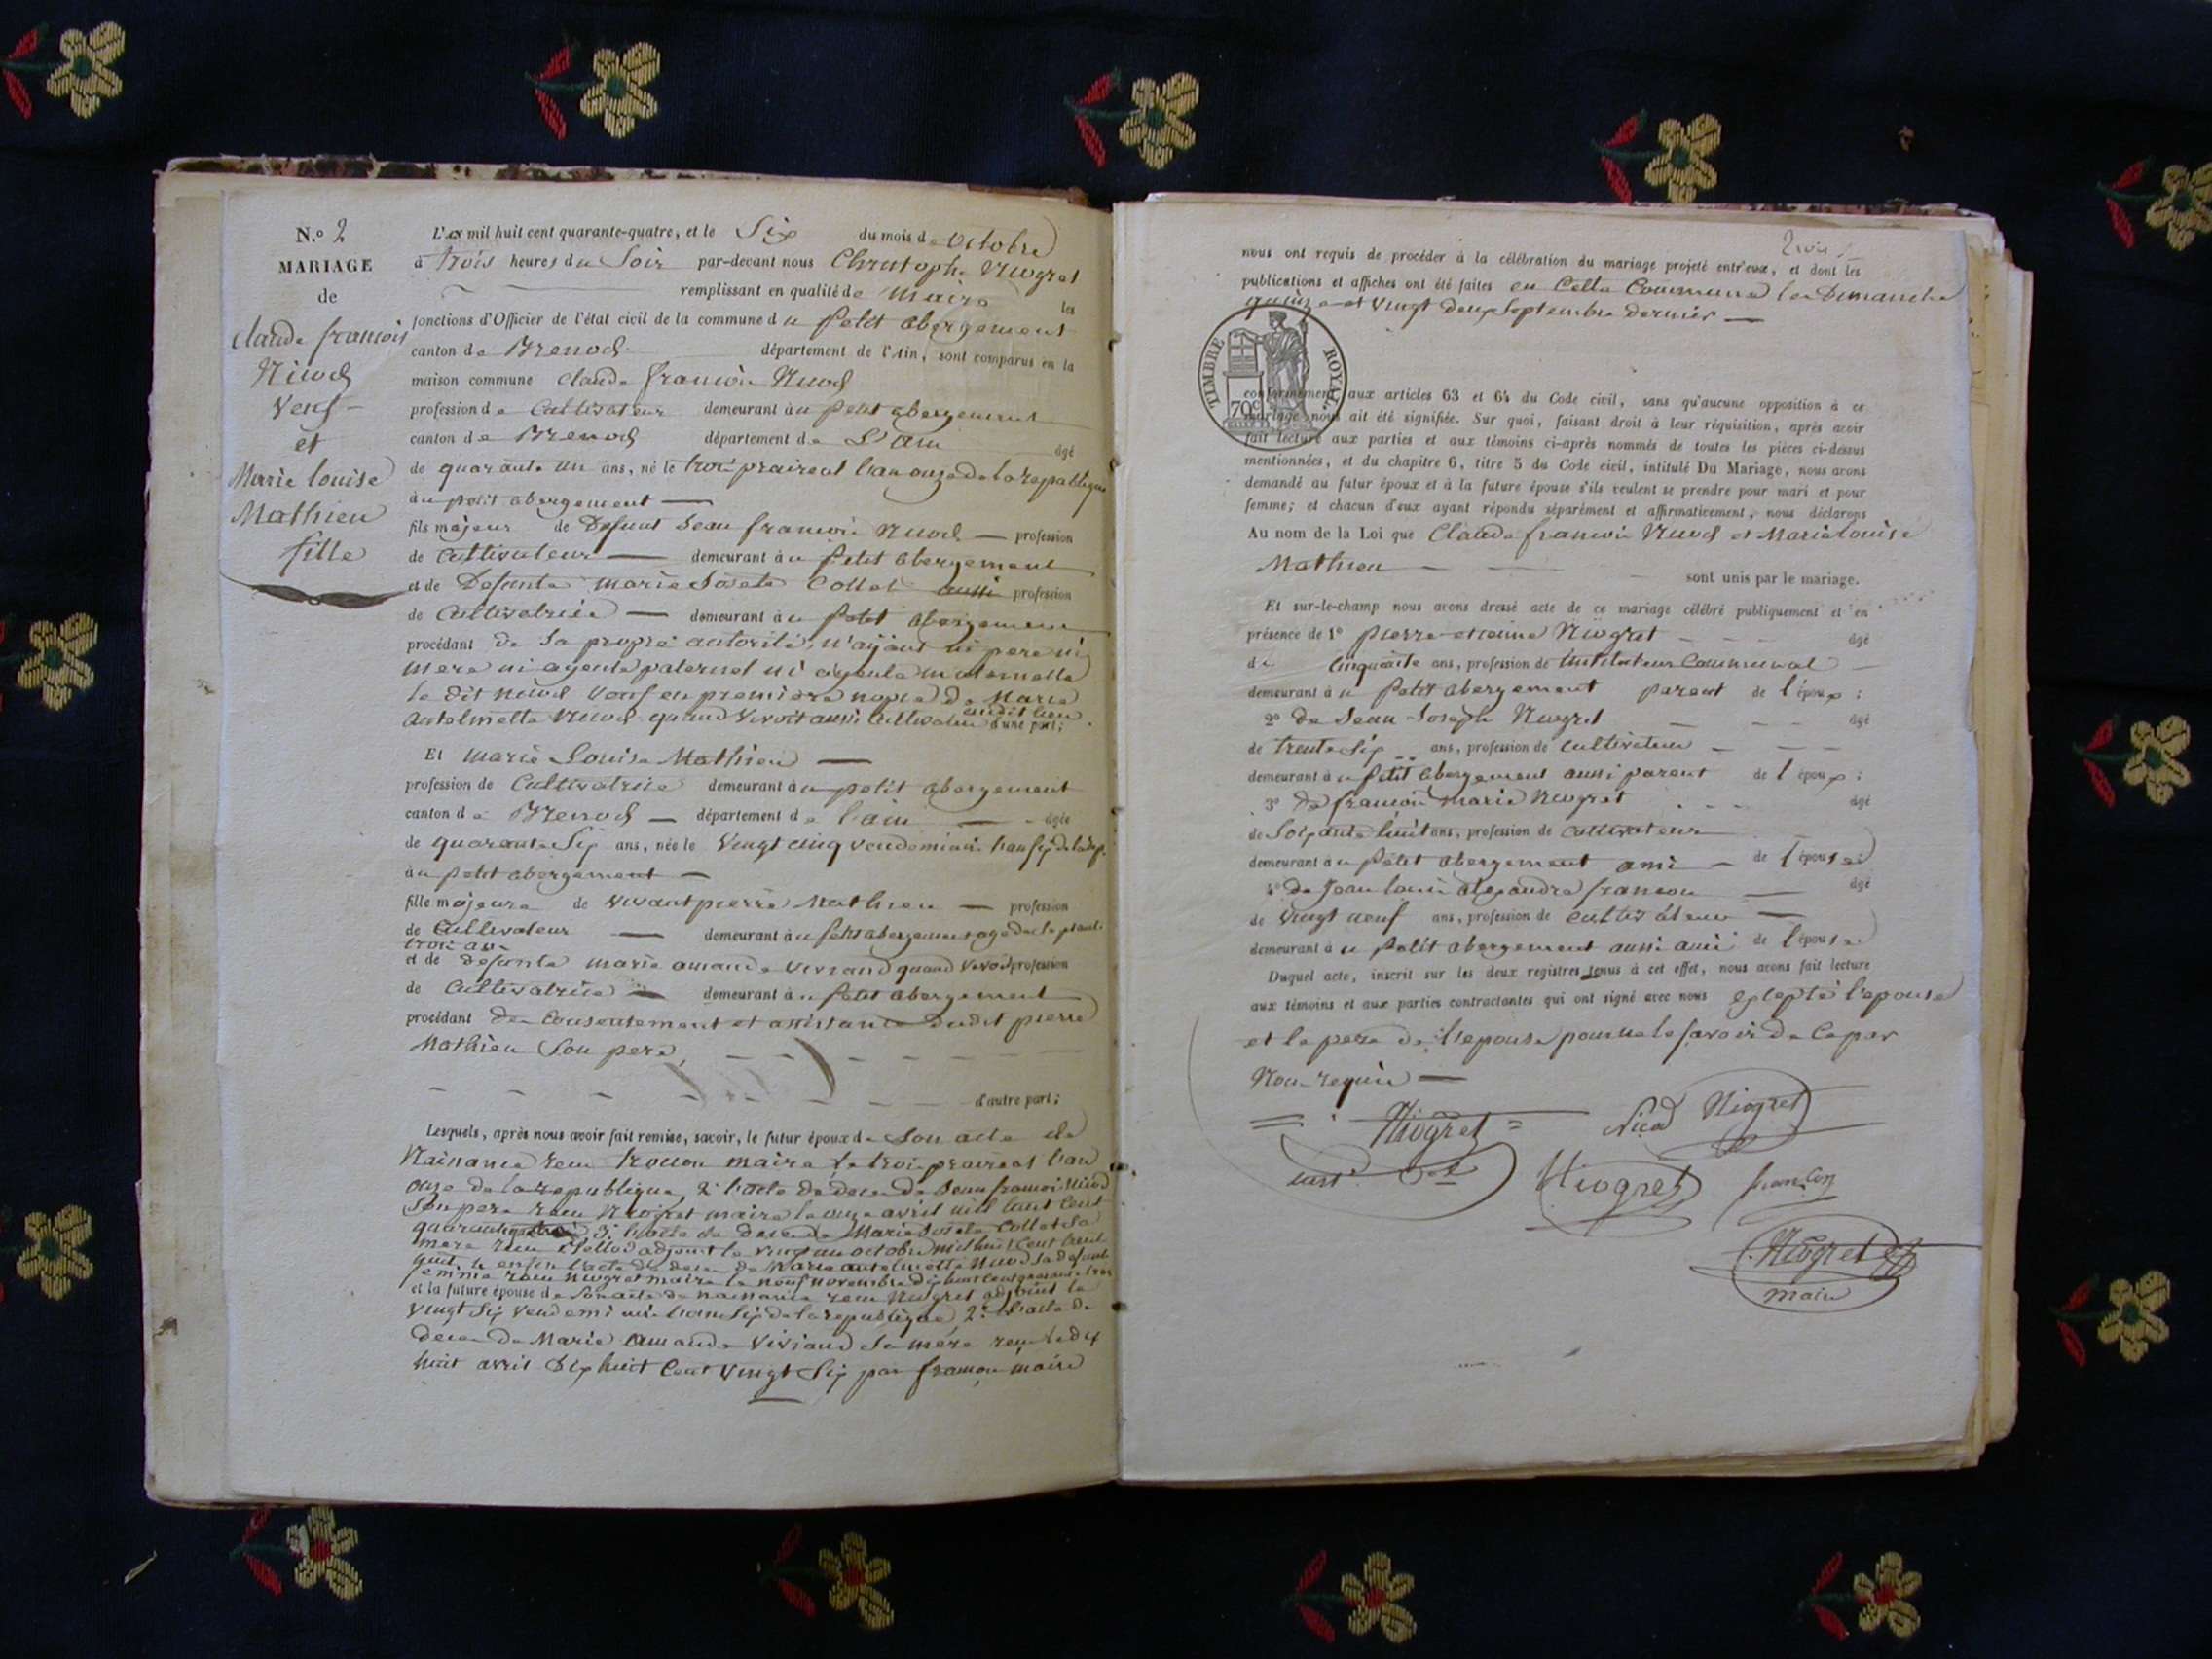 N.º 2
MARIAGE
de
claude françois
Nicod
Veuf
et
Marie louise
Mathieu
fille
L'an mil huit cent quarante-quatre, et le Six du mois de octobre
à trois heures du Soir par-devant nous Christophe Niogret
remplissant en qualité de Maire les
fonctions d'Officier de l'état civil de la commune du petit abergement
canton de Brenod département de l'Ain, sont comparus en la
maison commune claude françois Nicod
profession de Cultivateur demeurant au petit abergement
canton de Brenod département de L'ain âgé
de quarante un ans, né le trois prairial l'an onze de la republique
au petit abergement
fils majeur de Defunt Jean françois Nicod profession
de Cultivateur demeurant au petit abergement
et de Defunte marie Josete Collet aussi profession
de Cultivatrice demeurant au petit abergement
procédant de Sa propre autorité, n'ayant ni pere ni
mere ni ayeule paternel ni ayeule maternelle
le dit nicod Veuf en premiere nopce de Marie
antelmette Nicod quand vivoit aussi Cultivatrice audit lieu d'une part;
Et marie Louise Mathieu
profession de Cultivatrice demeurant au petit abergement
canton de Brenod département de l'ain âgée
de quarante Six ans, née le Vingt cinq vendemiaire l'an Six de la rep.
au petit abergement
fille majeure de vivant pierre Mathieu profession
de Cultivateur demeurant au petit abergement agé de
trois ans
et de defunte marie amande Viviand quand vivoit profession
de Cultivatrice demeurant au petit abergement
procédant du Consentement et assistance dudit pierre
Mathieu Son pere,
d'autre part;
Lesquels, après nous avoir fait remise, savoir, le futur époux de Son acte de
Naisance reçu maire le trois prairial l'an
onze de la republique, 2º l'acte de deces de Jean françois Nicod
Son pere reçu Niogret maire le onze avril mil huit Cent
quarante 3º l'acte de deces de Marie Josete Collet Sa
mere reçu adjoint le Vingt un octobre mil huit Cent
enfin l'acte de deces de Marie antelmette Nicod Sa defunte
femme reçu Niogret maire le neuf novembre dix huit Cent quarante trois
et la future épouse de Son acte de naisance reçu Niogret adjoint le
Vingt Six Vendemiaire l'an Six de la republique, 2º l'acte de
deces de Marie amande Viviand Sa mére reçu le dix
huit avril dix huit Cent Vingt Six par françon maire
trois
nous ont requis de procéder à la célébration du mariage projeté entr'eux, et dont les
publications et affiches ont été faites en Cette Commune les Dimanche
quinze et Vingt deux Septembre dernier
TIMBRE ROYAL.
70c
conformément aux articles 63 et 64 du Code civil, sans qu'aucune opposition à ce
mariage nous ait été signifiée. Sur quoi, faisant droit à leur réquisition, après avoir
fait lecture aux parties et aux témoins ci-après nommés de toutes les pièces ci-dessus
mentionnées, et du chapitre 6, titre 5 du Code civil, intitulé Du Mariage, nous avons
demandé au futur époux et à la future épouse s'ils veulent se prendre pour mari et pour
femme; et chacun d'eux ayant répondu séparément et affirmativement, nous déclarons
Au nom de la Loi que Claude françois Nicod et Marie louise
Mathieu
sont unis par le mariage.
Et sur-le-champ nous avons dressé acte de ce mariage célébré publiquement et en
présence de 1º pierre etienne Niogret âgé
de Cinquante ans, profession de instituteur Communal
demeurant au petit abergement parent de l'époux;
2º de Jean Joseph Niogret âgé
de trente Six ans, profession de cultivateur
demeurant au petit abergement aussi parent de l'époux;
3º de françois marie Niogret âgé
de Soixante huit ans, profession de cultivateur
demeurant au petit abergement ami de l'épouse
4º de Jean louis alexandre françon âgé
de Vingt neuf ans, profession de cultivateur
demeurant au petit abergement aussi ami de l'épouse
Duquel acte, inscrit sur les deux registres tenus à cet effet, nous avons fait lecture
aux témoins et aux parties contractantes qui ont signé avec nous excepté l'epouse
et le pere de l'epouse pour ne le savoir de ce par
Nous requis
Niogret
Nicod
Niogret
Niogret
françon
Niogret
maire